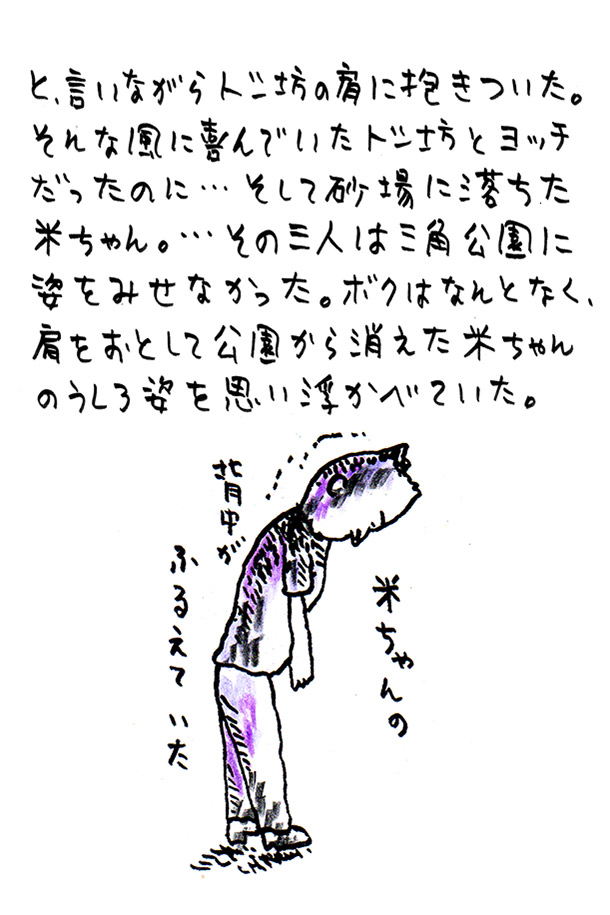 と、言いながらトン坊の肩に抱きついた。
そんな風に喜んでいたトン坊とヨッチ
だったのに…そして砂場に落ちた
米ちゃん。…その三人は三角公園に
姿をみせなかった。ボクはなんとなく、
肩をおとして公園から消えた米ちゃん
のうしろ姿を思い浮かべていた。
米ちゃんの
背中が
ふるえていた